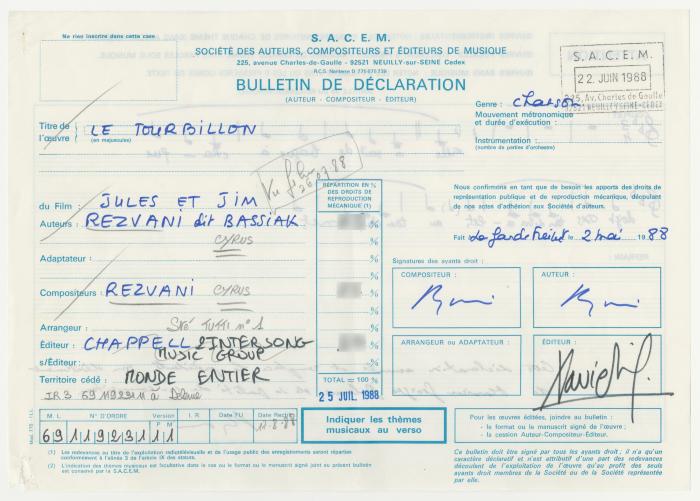 Ne rien inscrire dans cette case
S. A. C. E. M.
SOCIÉTÉ DES AUTEURS, COMPOSITEURS ET ÉDITEURS DE MUSIQUE
225, avenue Charles-de-Gaulle - 92521 NEUILLY-sur-SEINE Cedex
R.C.S. Nanterre D 775 675 739
BULLETIN DE DÉCLARATION
(AUTEUR - COMPOSITEUR - ÉDITEUR)
S. A. C. E. M.
22. JUIN 1988
225, Av. Charles de Gaulle
92521 NEUILLY-S/SEINE - CEDEX
Genre : chanson
Mouvement métronomique
et durée d'exécution :
Instrumentation :
(nombre de parties d'orchestre)
Titre de l'œuvre : (en majuscules) LE TOURBILLON
26.07.88
du Film : JULES ET JIM
Auteurs : REZVANI dit BASSIAK
CYRUS
Adaptateur :
Compositeurs : REZVANI CYRUS
Arrangeur : Sté TUTTI n° 1
Éditeur : CHAPPELL & INTERSONG
s/Éditeur : MUSIC GROUP
Territoire cédé : MONDE ENTIER
IR3 691192311 à
RÉPARTITION EN %
DES DROITS DE
REPRODUCTION
MÉCANIQUE (1)
%
%
%
%
%
%
%
TOTAL = 100 %
25 JUIL 1988
Nous confirmons en tant que de besoin les apports des droits de
représentation publique et de reproduction mécanique, découlant
de nos actes d'adhésion aux Sociétés d'auteurs.
Fait à La Garde Freinet le 2 mai 1988
Signatures des ayants droit :
COMPOSITEUR :
AUTEUR :
ARRANGEUR ou ADAPTATEUR :
ÉDITEUR :
M. L. N° D'ORDRE Version I. R. Date FU Date Rectif
P M
691192311 11
11-8-88
Indiquer les thèmes
musicaux au verso
Pour les œuvres éditées, joindre au bulletin :
- le format ou le manuscrit signé de l'œuvre ;
- la cession Auteur-Compositeur-Éditeur.
(1) Les redevances au titre de l'exploitation radiotélévisuelle et de l'usage public des enregistrements seront réparties
conformément à l'alinéa 3 de l'article IX des statuts.
(2) L'indication des thèmes musicaux est facultative dans le cas où le format ou le manuscrit signé joint au présent bulletin
est conservé par la S.A.C.E.M.
Ce bulletin doit être signé par tous les ayants droit ; il n'a qu'un
caractère déclaratif et n'est attributif d'une part des redevances
découlant de l'exploitation de l'œuvre qu'au profit des seuls
ayants droit membres de la Société ou de la Société représentée
par elle.